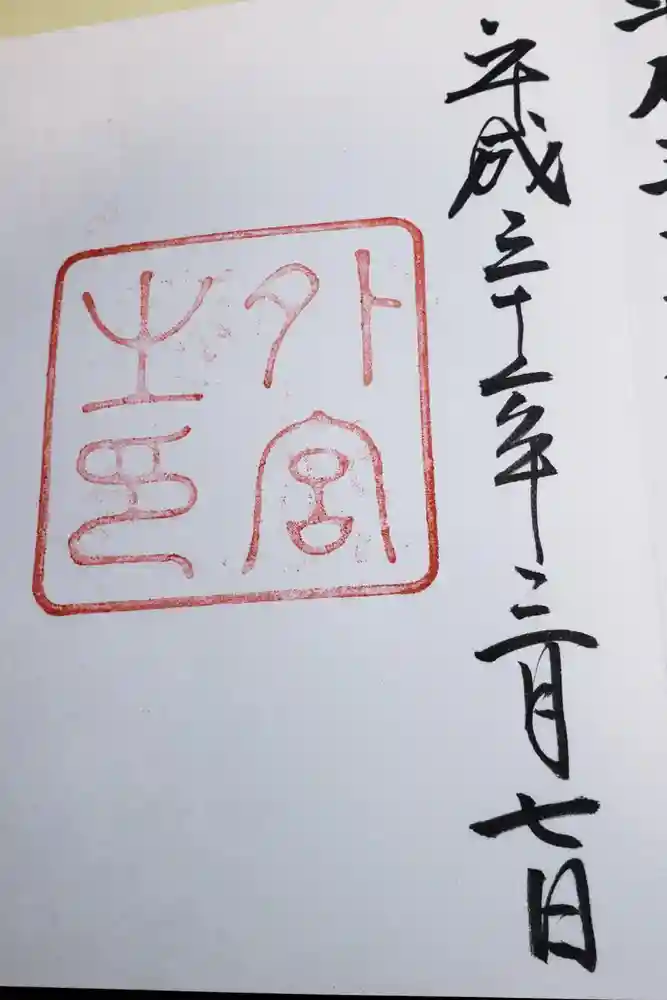 平成三十一年三月七日
外宮
之印